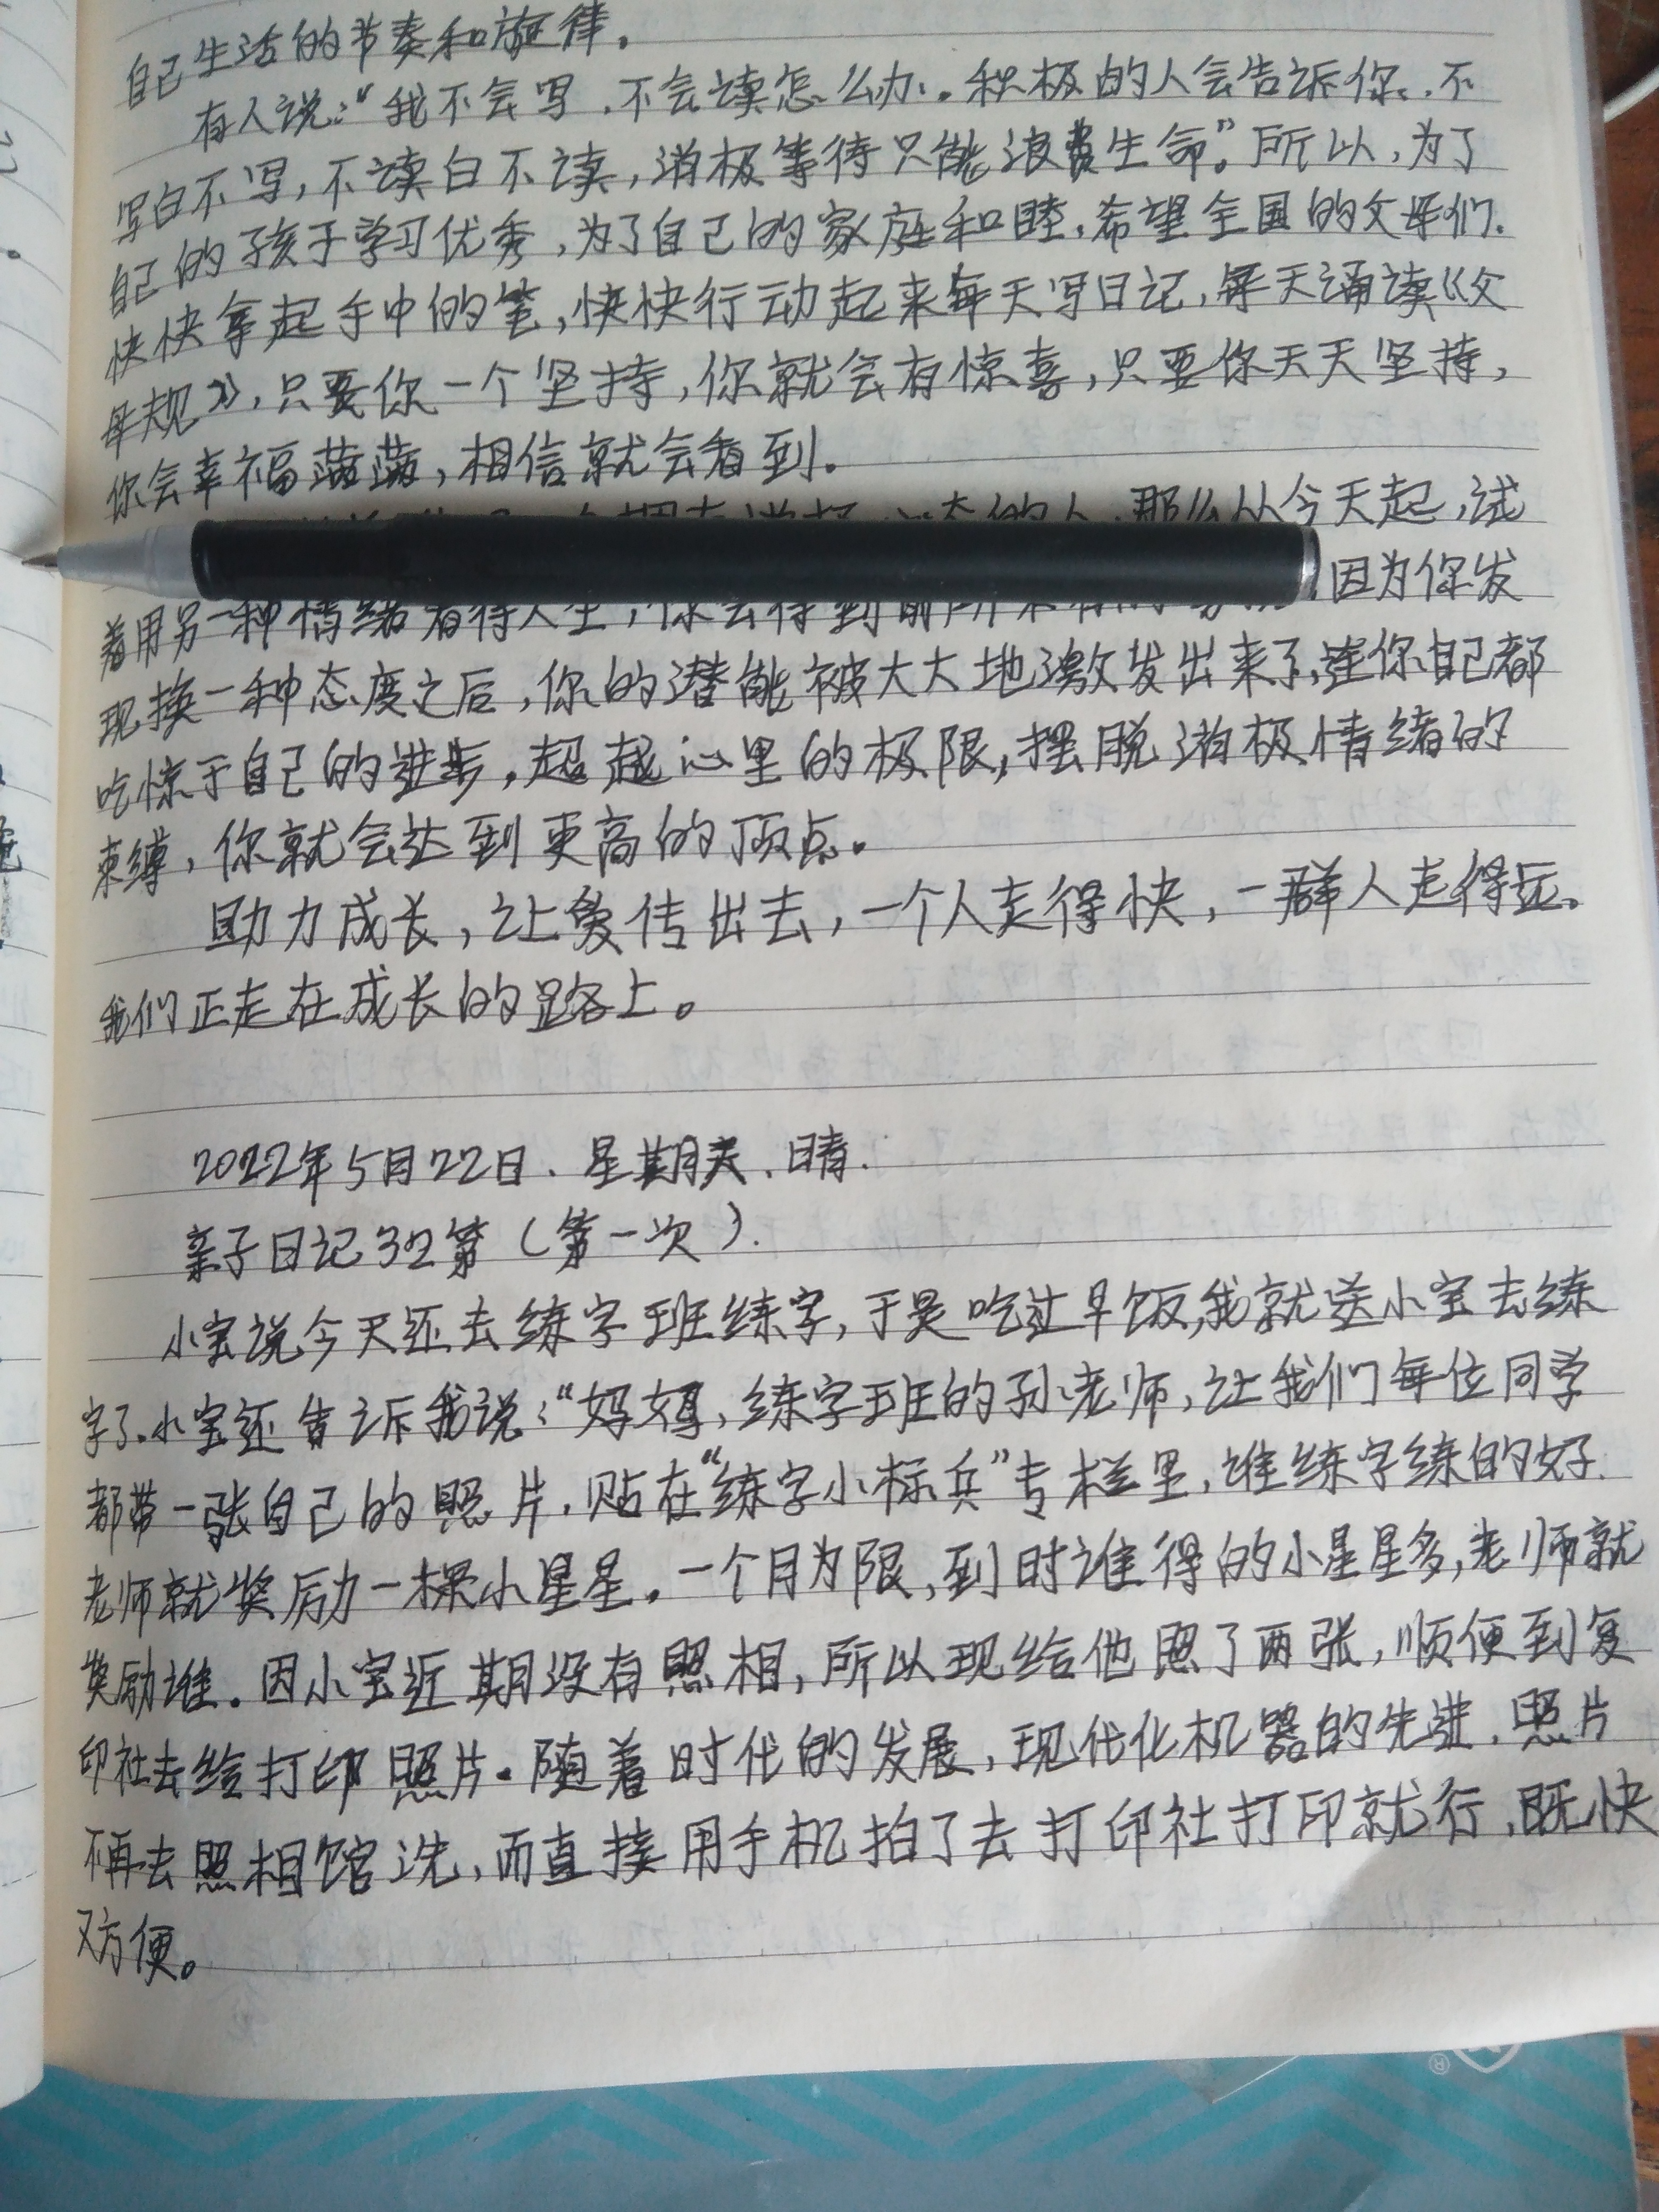 自己生活的节奏和旋律。
有人说:“我不会写,不会读怎么办。积极的人会告诉你,不
写白不写,不读白不读,消极等待只能浪费生命。”所以,为了
自己的孩子学习优秀,为了自己的家庭和睦,希望全国的父母们.
快快拿起手中的笔,快快行动起来每天写日记,每天诵读《父
母规》,只要你一个坚持,你就会有惊喜,只要你天天坚持,
你会幸福满满,相信就会看到。
那么从今天起,试
着用另一种情绪看待人生,你会得到前所未有的 因为你发
现换一种态度之后,你的潜能被大大地激发出来了,连你自己都
吃惊于自己的进步,超越心里的极限,摆脱消极情绪的
束缚,你就会达到更高的顶点。
助力成长,让爱传出去,一个人走得快,一群人走得远。
我们正走在成长的路上。
2022年5月22日.星期天.晴.
亲子日记32第(第一次).
小宝说今天还去练字班练字,于是吃过早饭,我就送小宝去练
字了.小宝还告诉我说:“妈妈,练字班的孙老师,让我们每位同学
都带一张自己的照片,贴在“练字小标兵”专栏里,谁练字练的好.
老师就奖励一棵小星星。一个月为限,到时谁得的小星星多,老师就
奖励谁。因小宝近期没有照相,所以现给他照了两张,顺便到复
印社去给打印照片。随着时代的发展,现代化机器的先进.照片
不再去照相馆洗,而直接用手机拍了去打印社打印就行,既快
又方便。